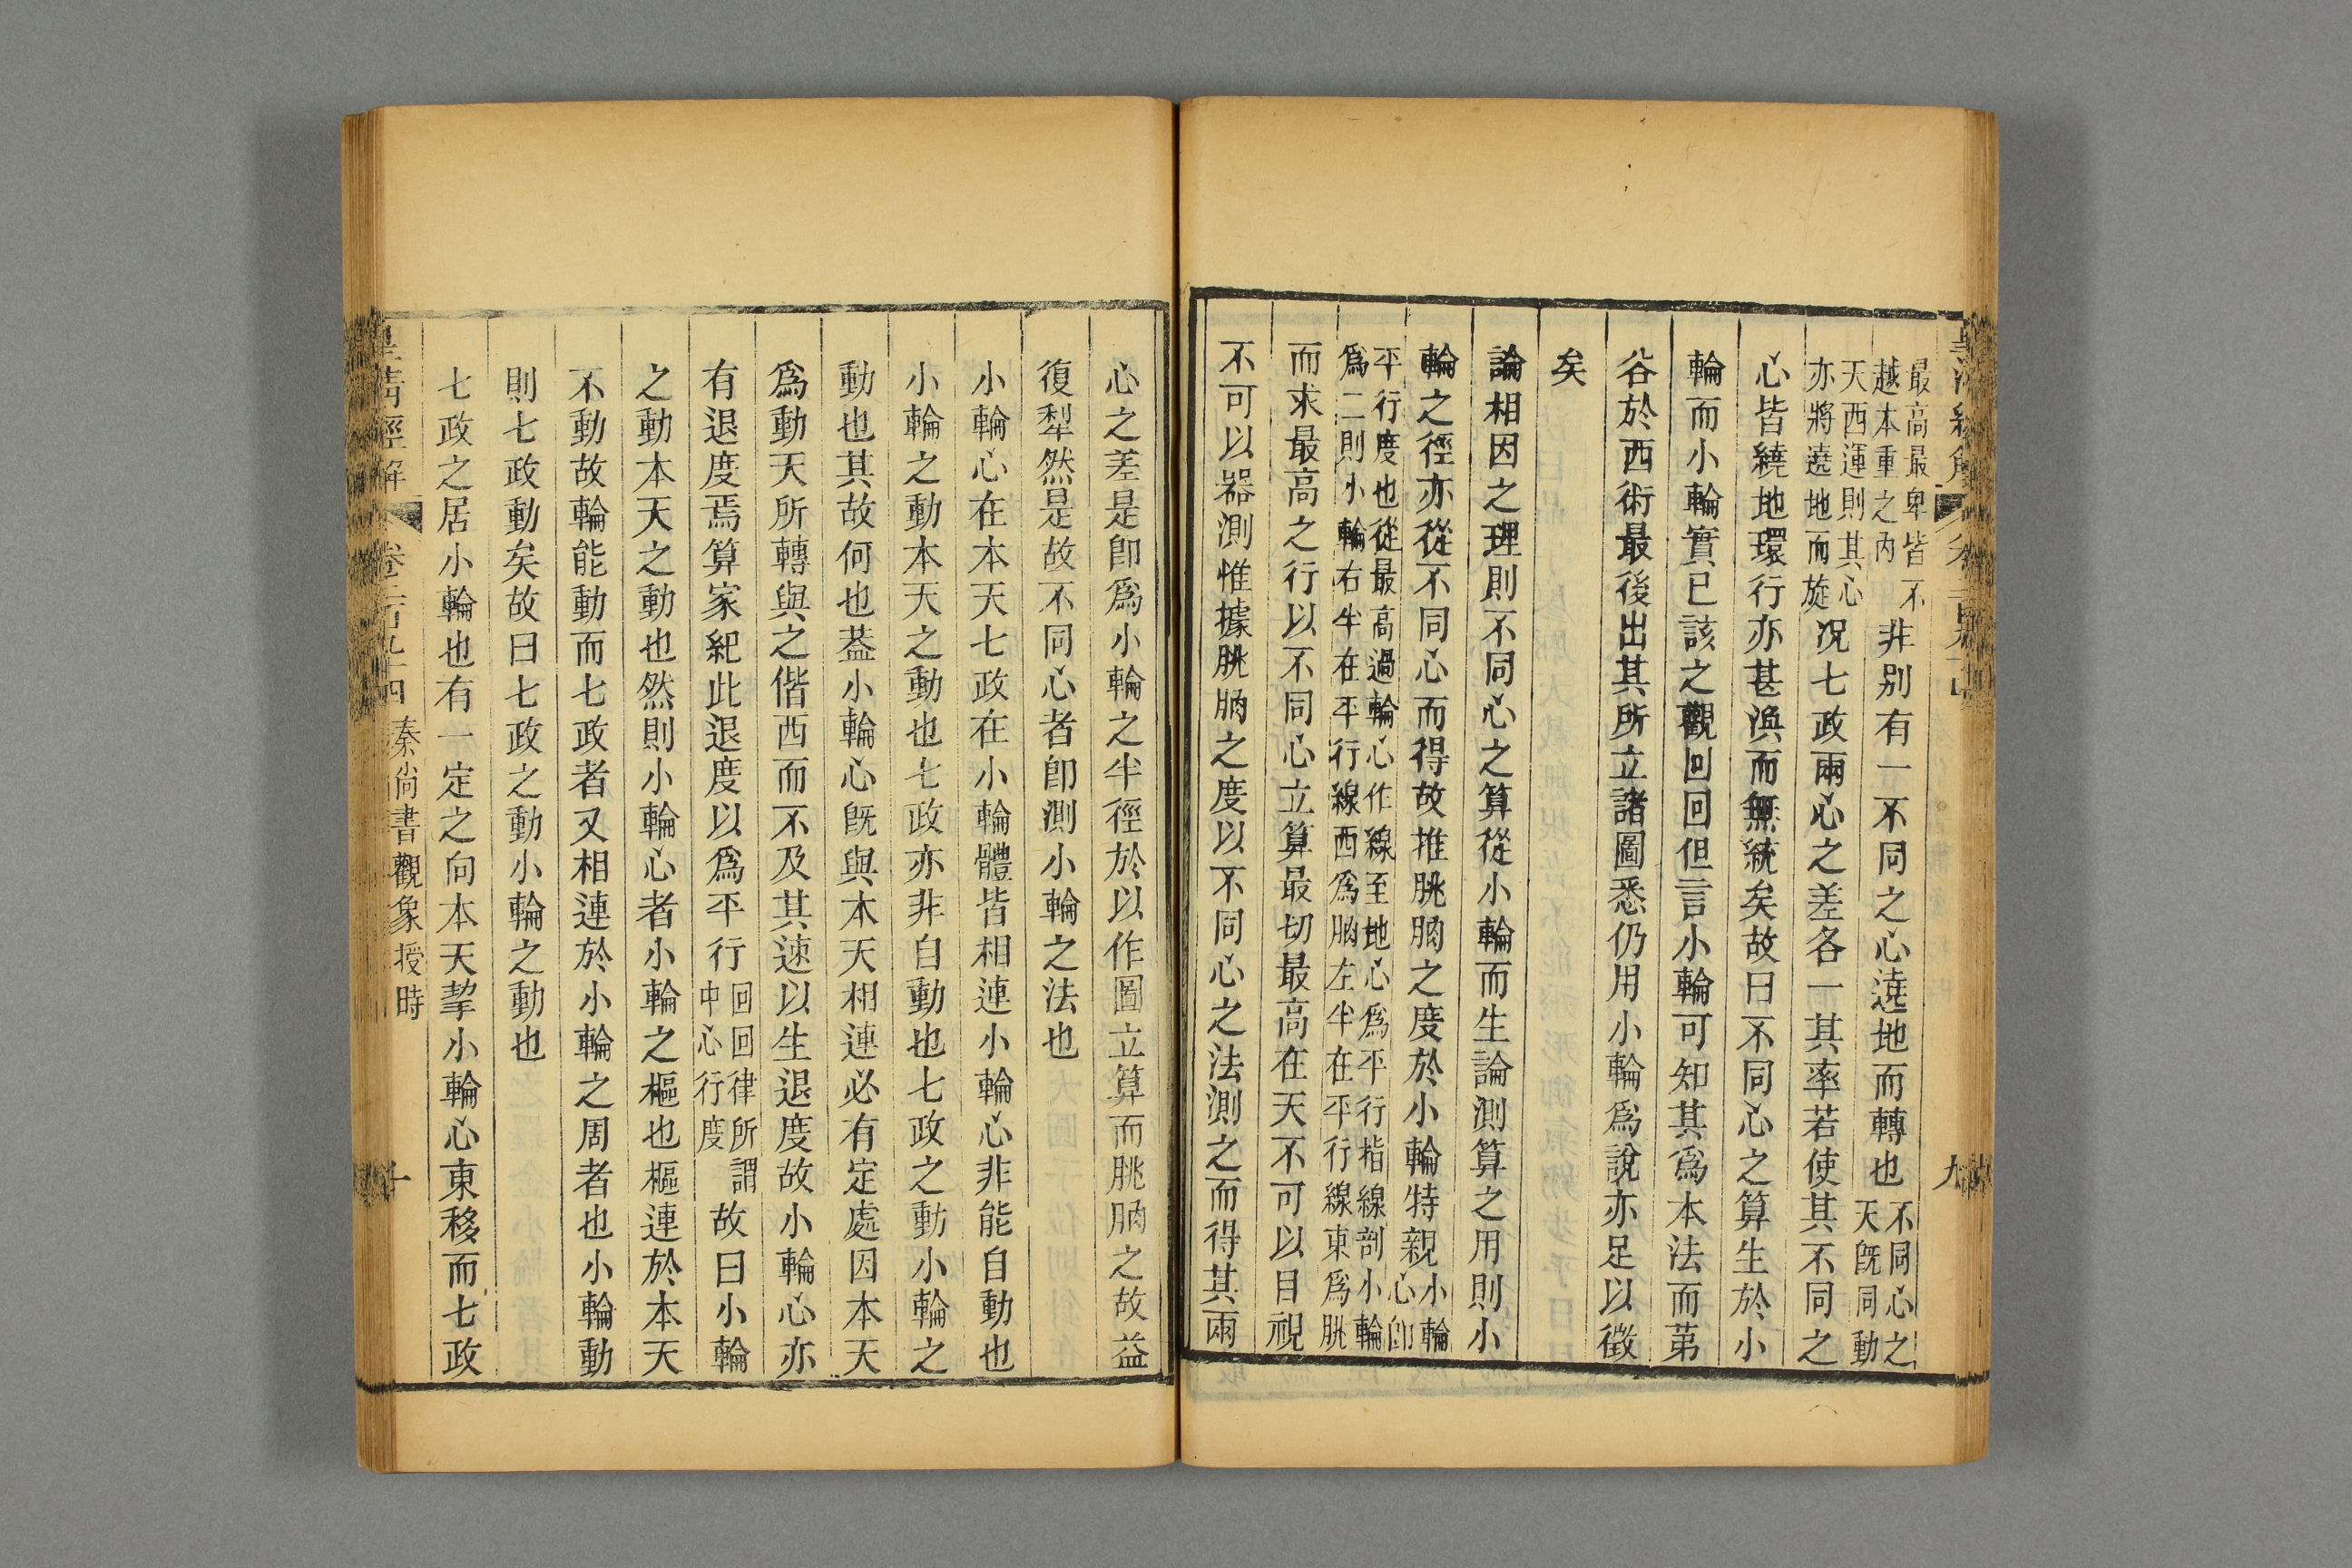 最高最卑皆不
越本重之內
非别有一不同之心遶地而轉也
不同心之
天既同動
天西運則其心
亦將遶地而旋
况七政兩心之差各一其率若使其不同之
心皆繞地環行亦甚渙而無統矣故曰不同心之算生於小
輪而小輪實已該之觀回回但言小輪可知其為本法而第
谷於西術最後出其所立諸圖悉仍用小輪為說亦足以徵
矣
論相因之理則不同心之算從小輪而生論測算之用則小
輪之徑亦從不同心而得故推朓朒之度於小輪特親
小輪
心卽
平行度也從最高過輪心作線至地心為平行指線剖小輪
為二則小輪右半在平行線西為朒左半在平行線東為朓
而求最高之行以不同心立算最切最高在天不可以目視
不可以器測惟據朓朒之度以不同心之法測之而得其兩
九
心之差是卽為小輪之半徑於以作圖立算而朓朒之故益
復犁然是故不同心者卽測小輪之法也
小輪心在本天七政在小輪體皆相連小輪心非能自動也
小輪之動本天之動也七政亦非自動也七政之動小輪之
動也其故何也葢小輪心旣與本天相連必有定處因本天
為動天所轉與之偕西而不及其速以生退度故小輪心亦
有退度焉算家紀此退度以為平行
回回律所謂
中心行度
故曰小輪
之動本天之動也然則小輪心者小輪之樞也樞連於本天
不動故輪能動而七政者又相連於小輪之周者也小輪動
則七政動矣故曰七政之動小輪之動也
七政之居小輪也有一定之向本天挈小輪心東移而七政
皇清經解
卷二百九十四
秦尚書觀象授時
十